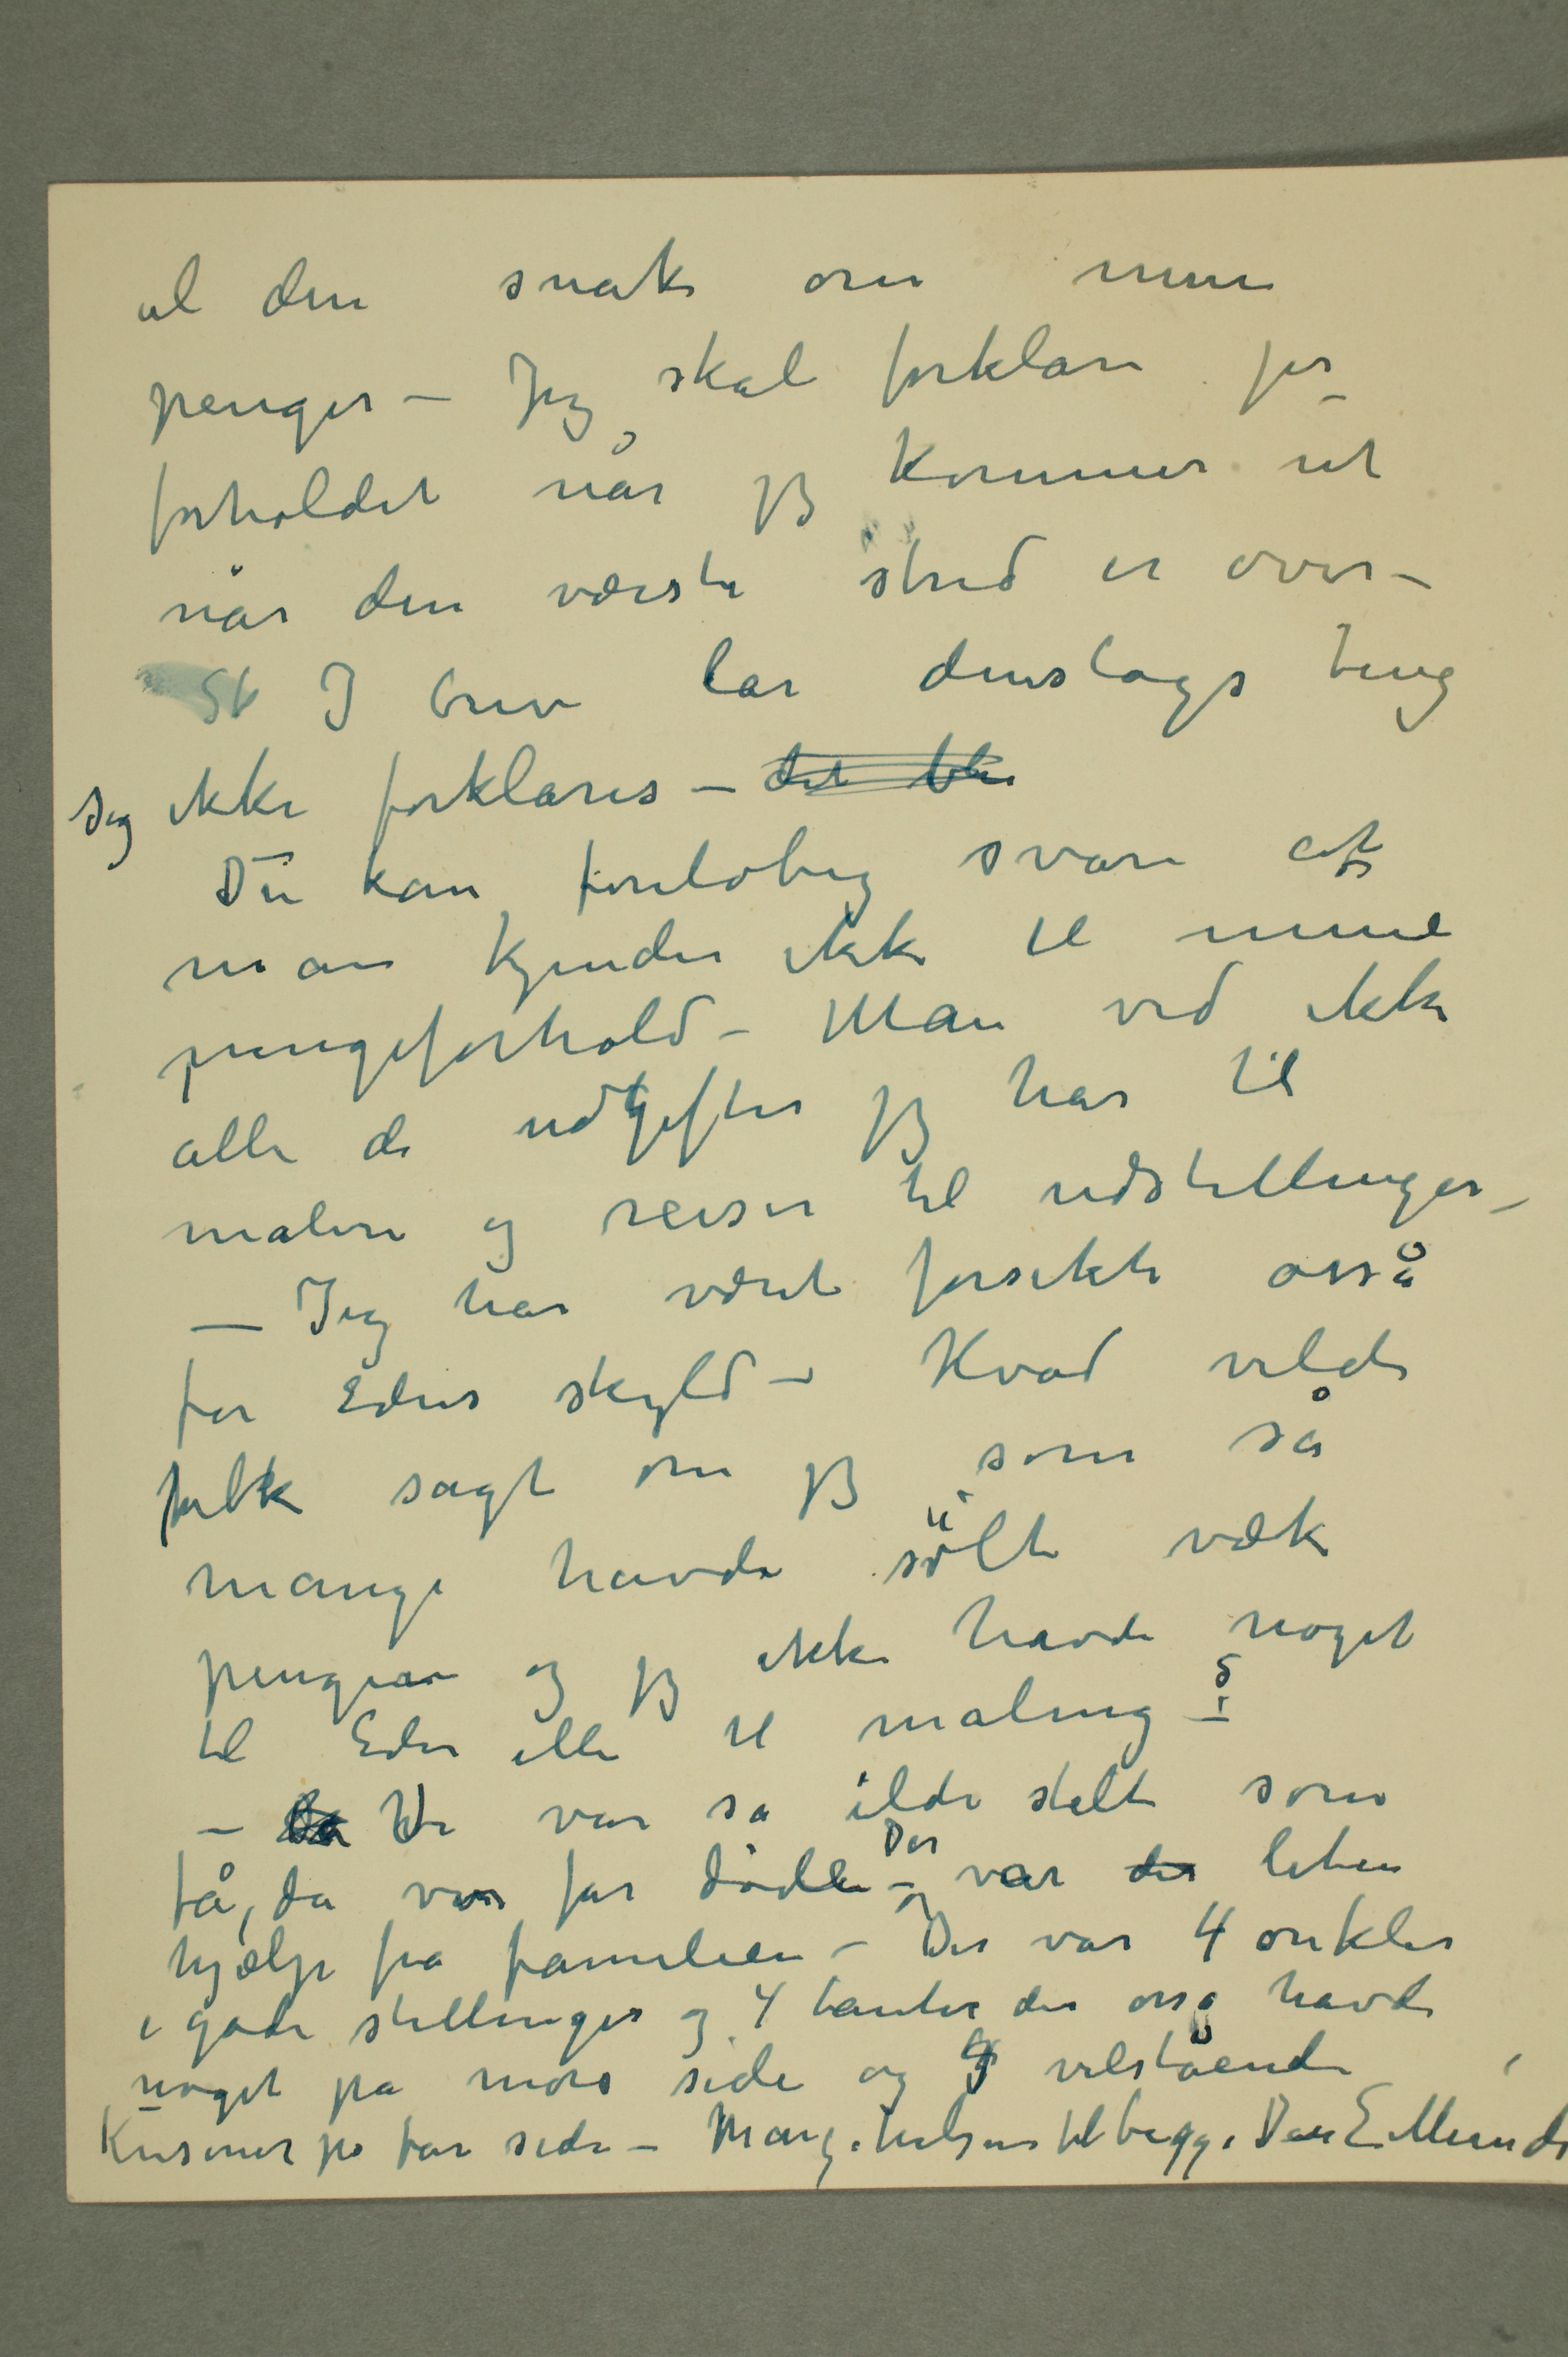 al den snak om mine
penger – Jeg skal forklare jer
forholdet når jeg kommer ut
når den værste strid er over –
St I brev lar denslags ting
sig ikke forklares – det blir
Du kan foreløbig svare at
man kjender ikke til mine
pengeforhold – Man ved ikke
alle de udgifter jeg har til
maleri og reiser til udstillinger –
– Jeg har været forsikti osså
for Eders skyld – Hvad vilde
folk sagt om jeg som så
mange havde sölt væk
pengene og jeg ikke havde noget
til Eder eller til maling –
– Da Vi var så ilde stelt som
få, da vor far døde – Der og var der liten
hjælp fra familien – Der var 4 onkler
i gode stillinger og 4 tanter der osså havde
noget på mors side og velstående
Kusiner på fars side – Mange hilsner til begge Deres E. Munch